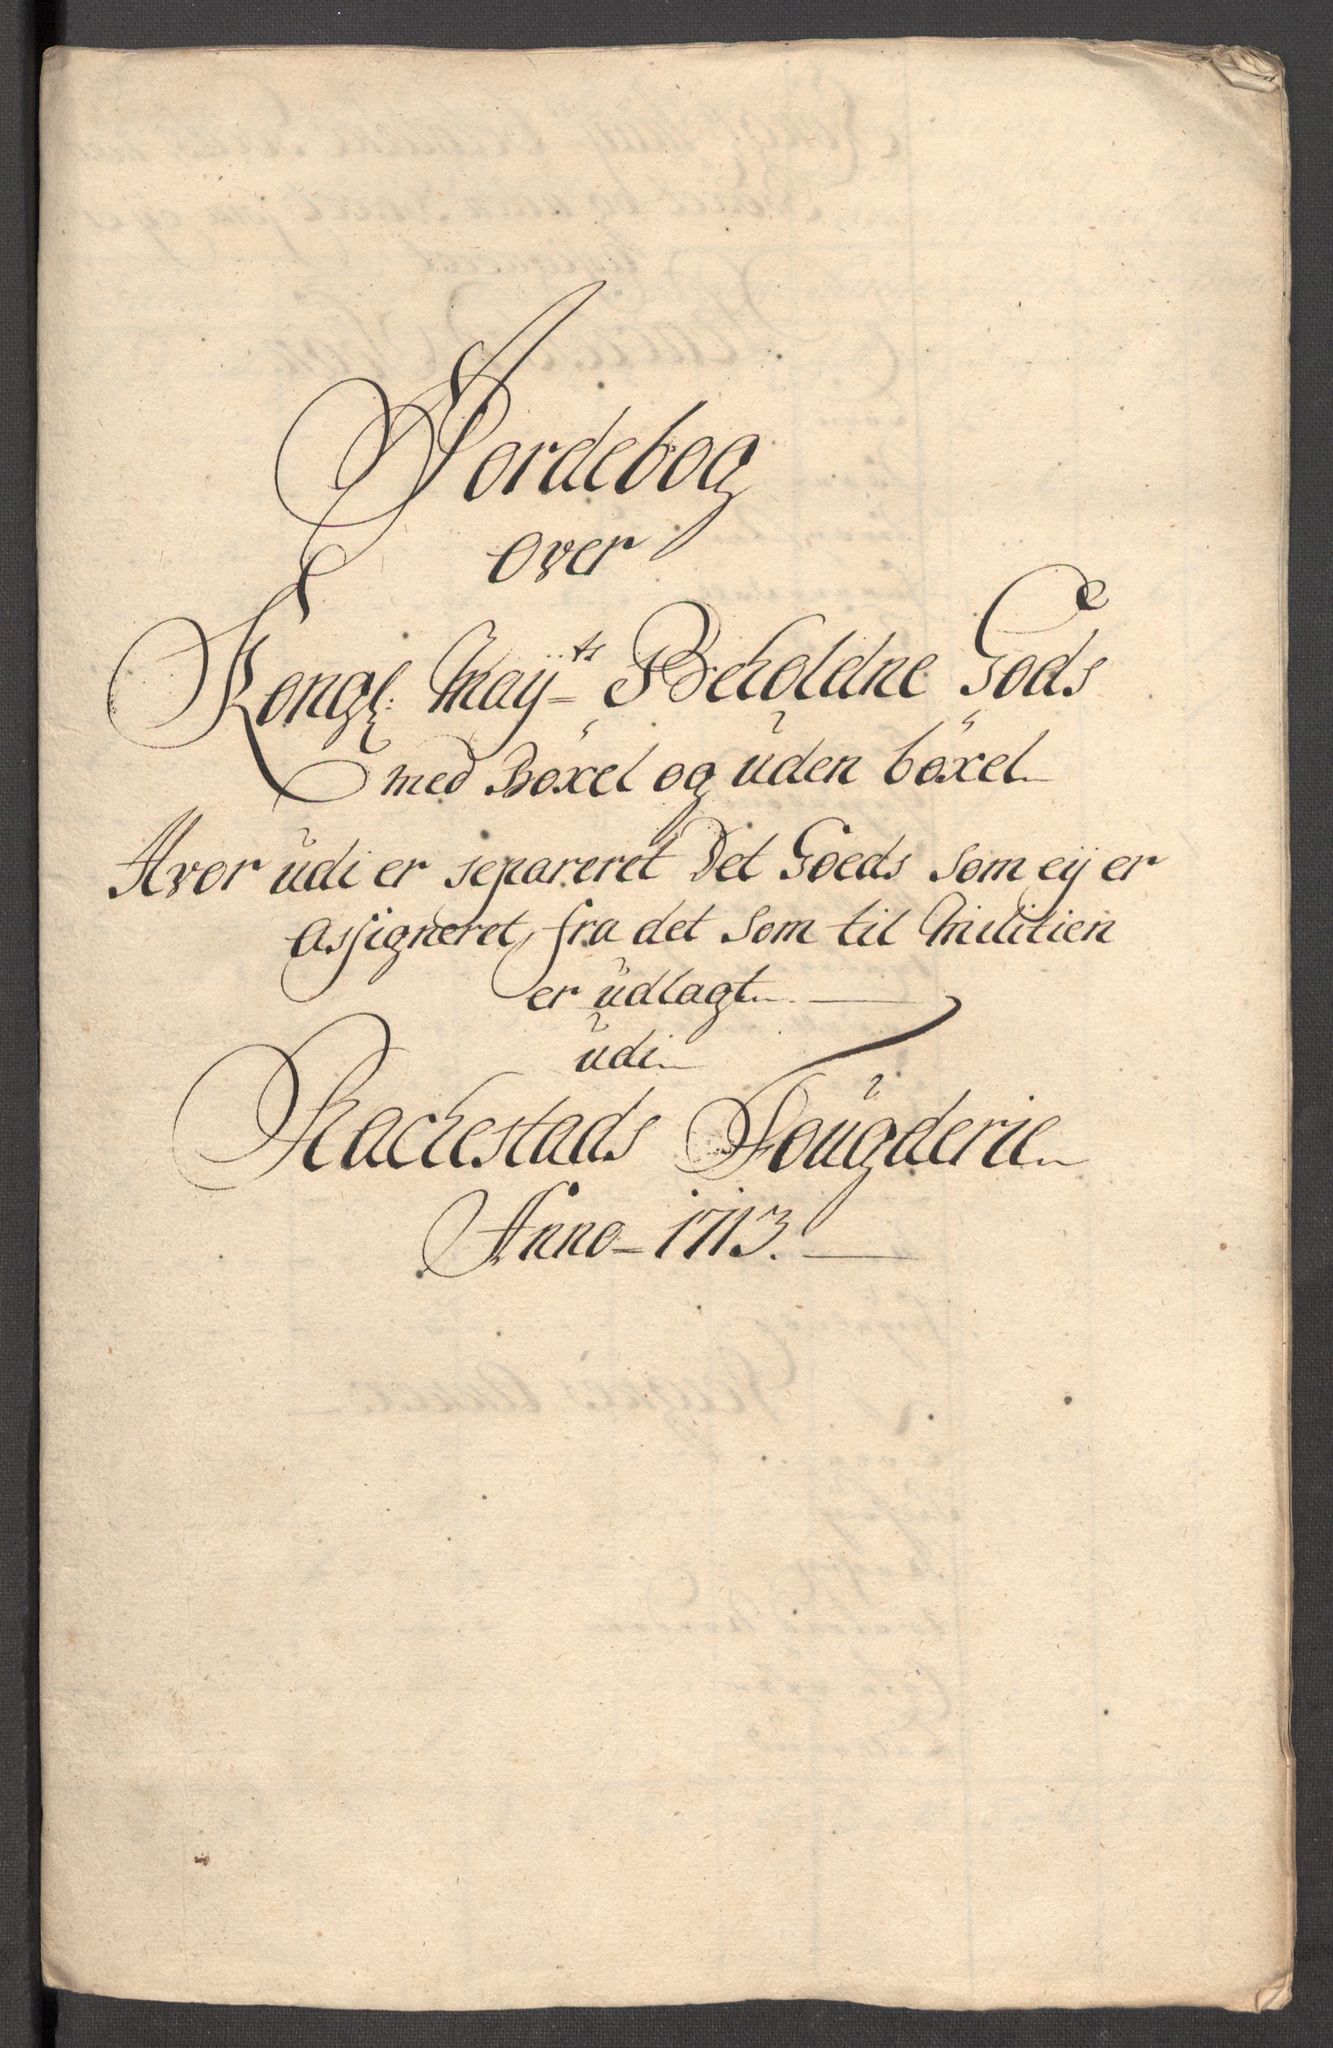 Jordebog
over
Kongl: May:ts Beholdne Gods
med Böxel og uden böxel
Hvor udi er separeret Det Goeds som eÿ er
assigneret, fra det som til Militien
er udlagt
udi
Rackestads Fougderie
Anno 1713.